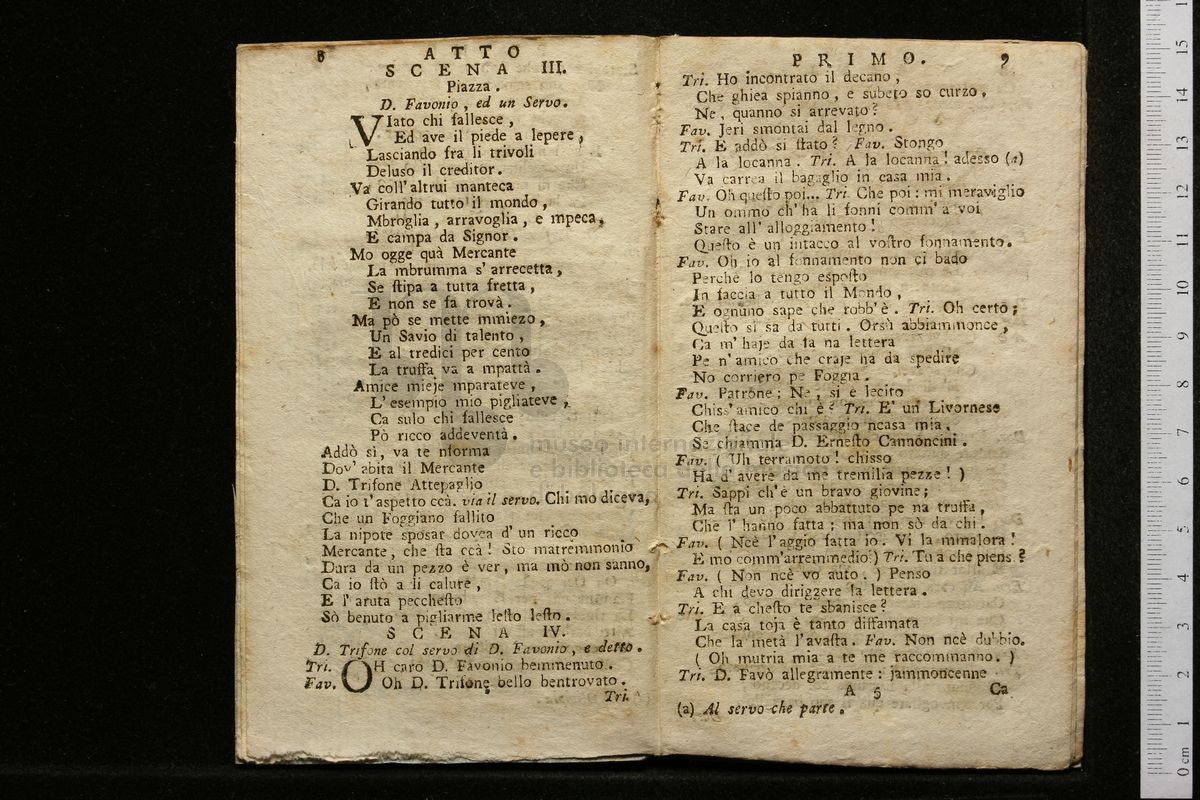 8 ATTO
SCENA III.
Piazza.
D. Favonio, ed un Servo.
VIato chi fallesce,
Ed ave il piede a lepere,
Lasciando fra li trivoli
Deluso il creditor.
Va coll' altrui manteca
Girando tutto il mondo,
Mbroglia, arravoglia, e mpeca,
E campa da Signor.
Mo ogge quà Mercante
La mbrumma s' arrecetta,
Se ſtipa a tutta fretta,
E non se fa trovà.
Ma pò se mette mmiezo,
Un Savio di talento,
E al tredici per cento
La truffa va a mpattà.
Amice mieje mparateve,
L' esempio mio pigliateve,
Ca sulo chi fallesce
Pò ricco addeventà.
Addò si, va te nforma
Dov' abita il Mercante
D. Trifone Attepaglio
Ca io l' aspetto ccà. via il servo. Chi mo diceva,
Che un Foggiano fallito
La nipote sposar dovea d' un ricco
Mercante, che ſta ccà! Sto matremmonio
Dura da un pezzo è ver, ma mò non sanno,
Ca io ſtò a li calure,
E l' aruta peccheſto
Sò benuto a pigliarme leſto leſto.
SCENA IV.
D. Trifone col servo di D. Favonio, e detto.
Tri. OH caro D. Favonio bemmenuto.
Fav. Oh D. Trifone bello bentrovato.
Tri.
PRIMO. 9
Tri. Ho incontrato il decano,
Che ghiea spianno, e subeto so curzo,
Ne, quanno si arrevato?
Fav. Jeri smontai dal legno.
Tri. E addò si ſtato? Fav. Stongo
A la locanna. Tri. A la locanna! adesso (a)
Va carrea il bagaglio in casa mia.
Fav. Oh queſto poi... Tri. Che poi: mi meraviglio
Un ommo ch' ha li fonni comm' a voi
Stare all' alloggiamento!
Queſto è un intacco al voſtro fonnamento.
Fav. Oh io al fonnamento non ci bado
Perchè lo tengo espoſto
In faccia a tutto il Mondo,
E ognuno sape che robb' è. Tri. Oh certo;
Queſto si sa da tutti. Orsù abbiammonce,
Ca m' haje da fa na lettera
Pe n' amico che craje ha da spedire
No corriero pe Foggia.
Fav. Patrone: Ne, si è lecito
Chiss' amico chi è? Tri. E' un Livornese
Che ſtace de passaggio ncasa mia,
Se chiamma D. Erneſto Cannoncini.
Fav. ( Uh terramoto! chisso
Ha d' avere da me tremilia pezze! )
Tri. Sappi ch' è un bravo giovine;
Ma ſta un poco abbattuto pe na truffa,
Che l' hanno fatta; ma non sò da chi.
Fav. ( Ncè l' aggio fatta io. Vi la mmalora!
E mo comm' arremmedio?) Tri. Tu a che piens?
Fav. ( Non ncè vo auto. ) Penso
A chi devo diriggere la lettera.
Tri. E a cheſto te sbanisce?
La casa toja è tanto diffamata
Che la metà l' avaſta. Fav. Non ncè dubbio.
( Oh mutria mia a te me raccommanno. )
Tri. D. Favò allegramente: jammoncenne
A 5 Ca
(a) Al servo che parte.